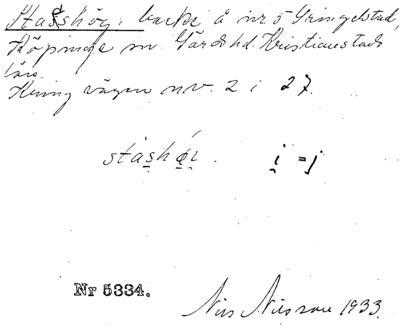 Stasshög: backe å nr 5 Yringelstad,
Köpinge sn. Gärds hd. Kristianstads
län.
Kring vägen nv. 2 i 27.
ståshǿi. i = j
Nr 5334.
Nils Nilsson 1933.